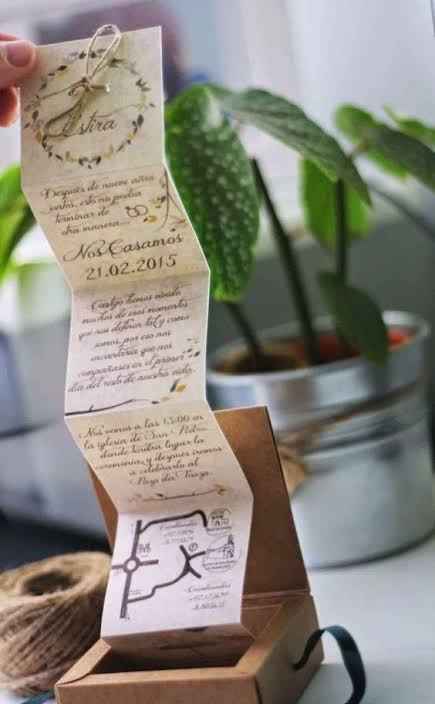 Estira
Después de nueve años
juntos, esto no podía
terminar de
otra manera...
Nos Casamos
21.02.2015
Contigo hemos vivido
muchos de esos momentos
que nos definen tal y como
somos, por eso nos
encantaría que nos
acompañases en el primer
día del resto de nuestra vida.
Nos vemos a las 13:00 en
la iglesia de San Pedro
donde tendrá lugar la
ceremonia, y después iremos
a celebrarlo al
Pazo da
Coordenadas
Coordenadas